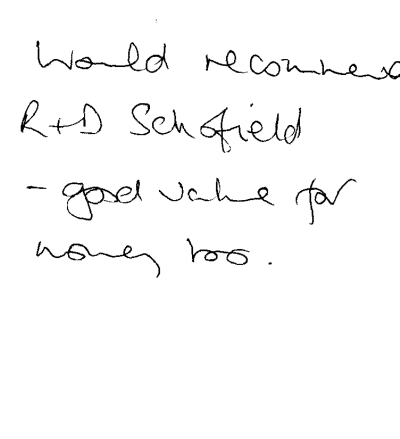 Would recommend
R+D Schofield
- good value for
money too.